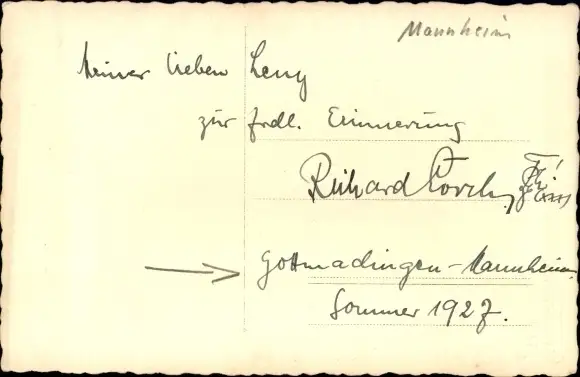 Mannheim
Meiner lieben Leny
zur frdl. Erinnerung
Richard
Gottmadingen-Mannheim
Sommer 1927.